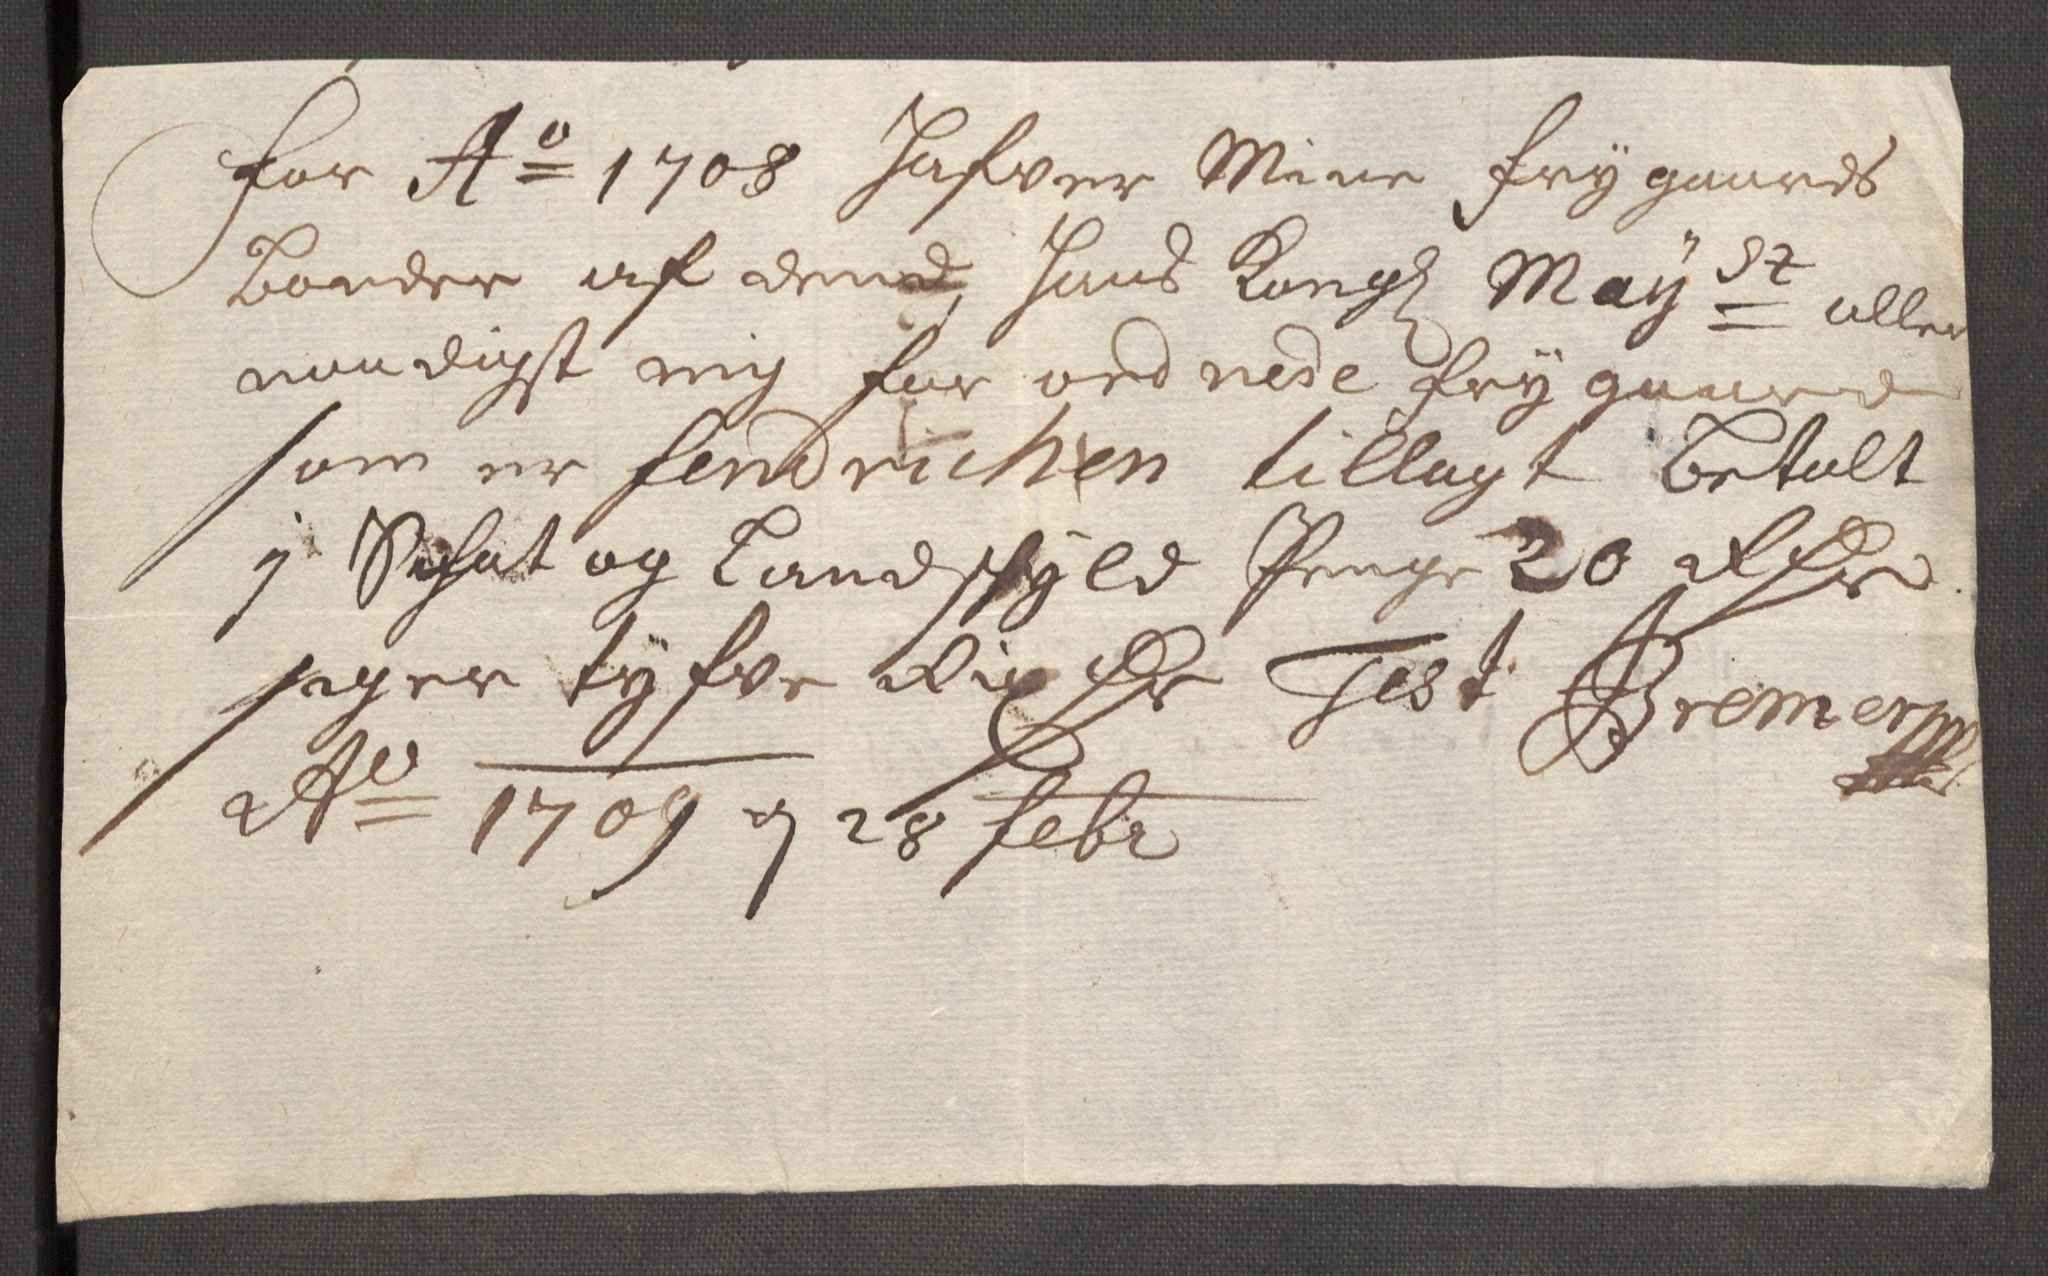 for Ao 1708 Hafver Mine frÿgaards
Bønder af dend, Hans Kongl Maÿst aller
naadigst mig for ordnede frÿgaard
som er fendrichen tillagt Betalt
j Schat og Landschÿld Penge 20 Rdr
siger tÿfve Rixdr Test Bremer
Ao 1709 d 28 febr